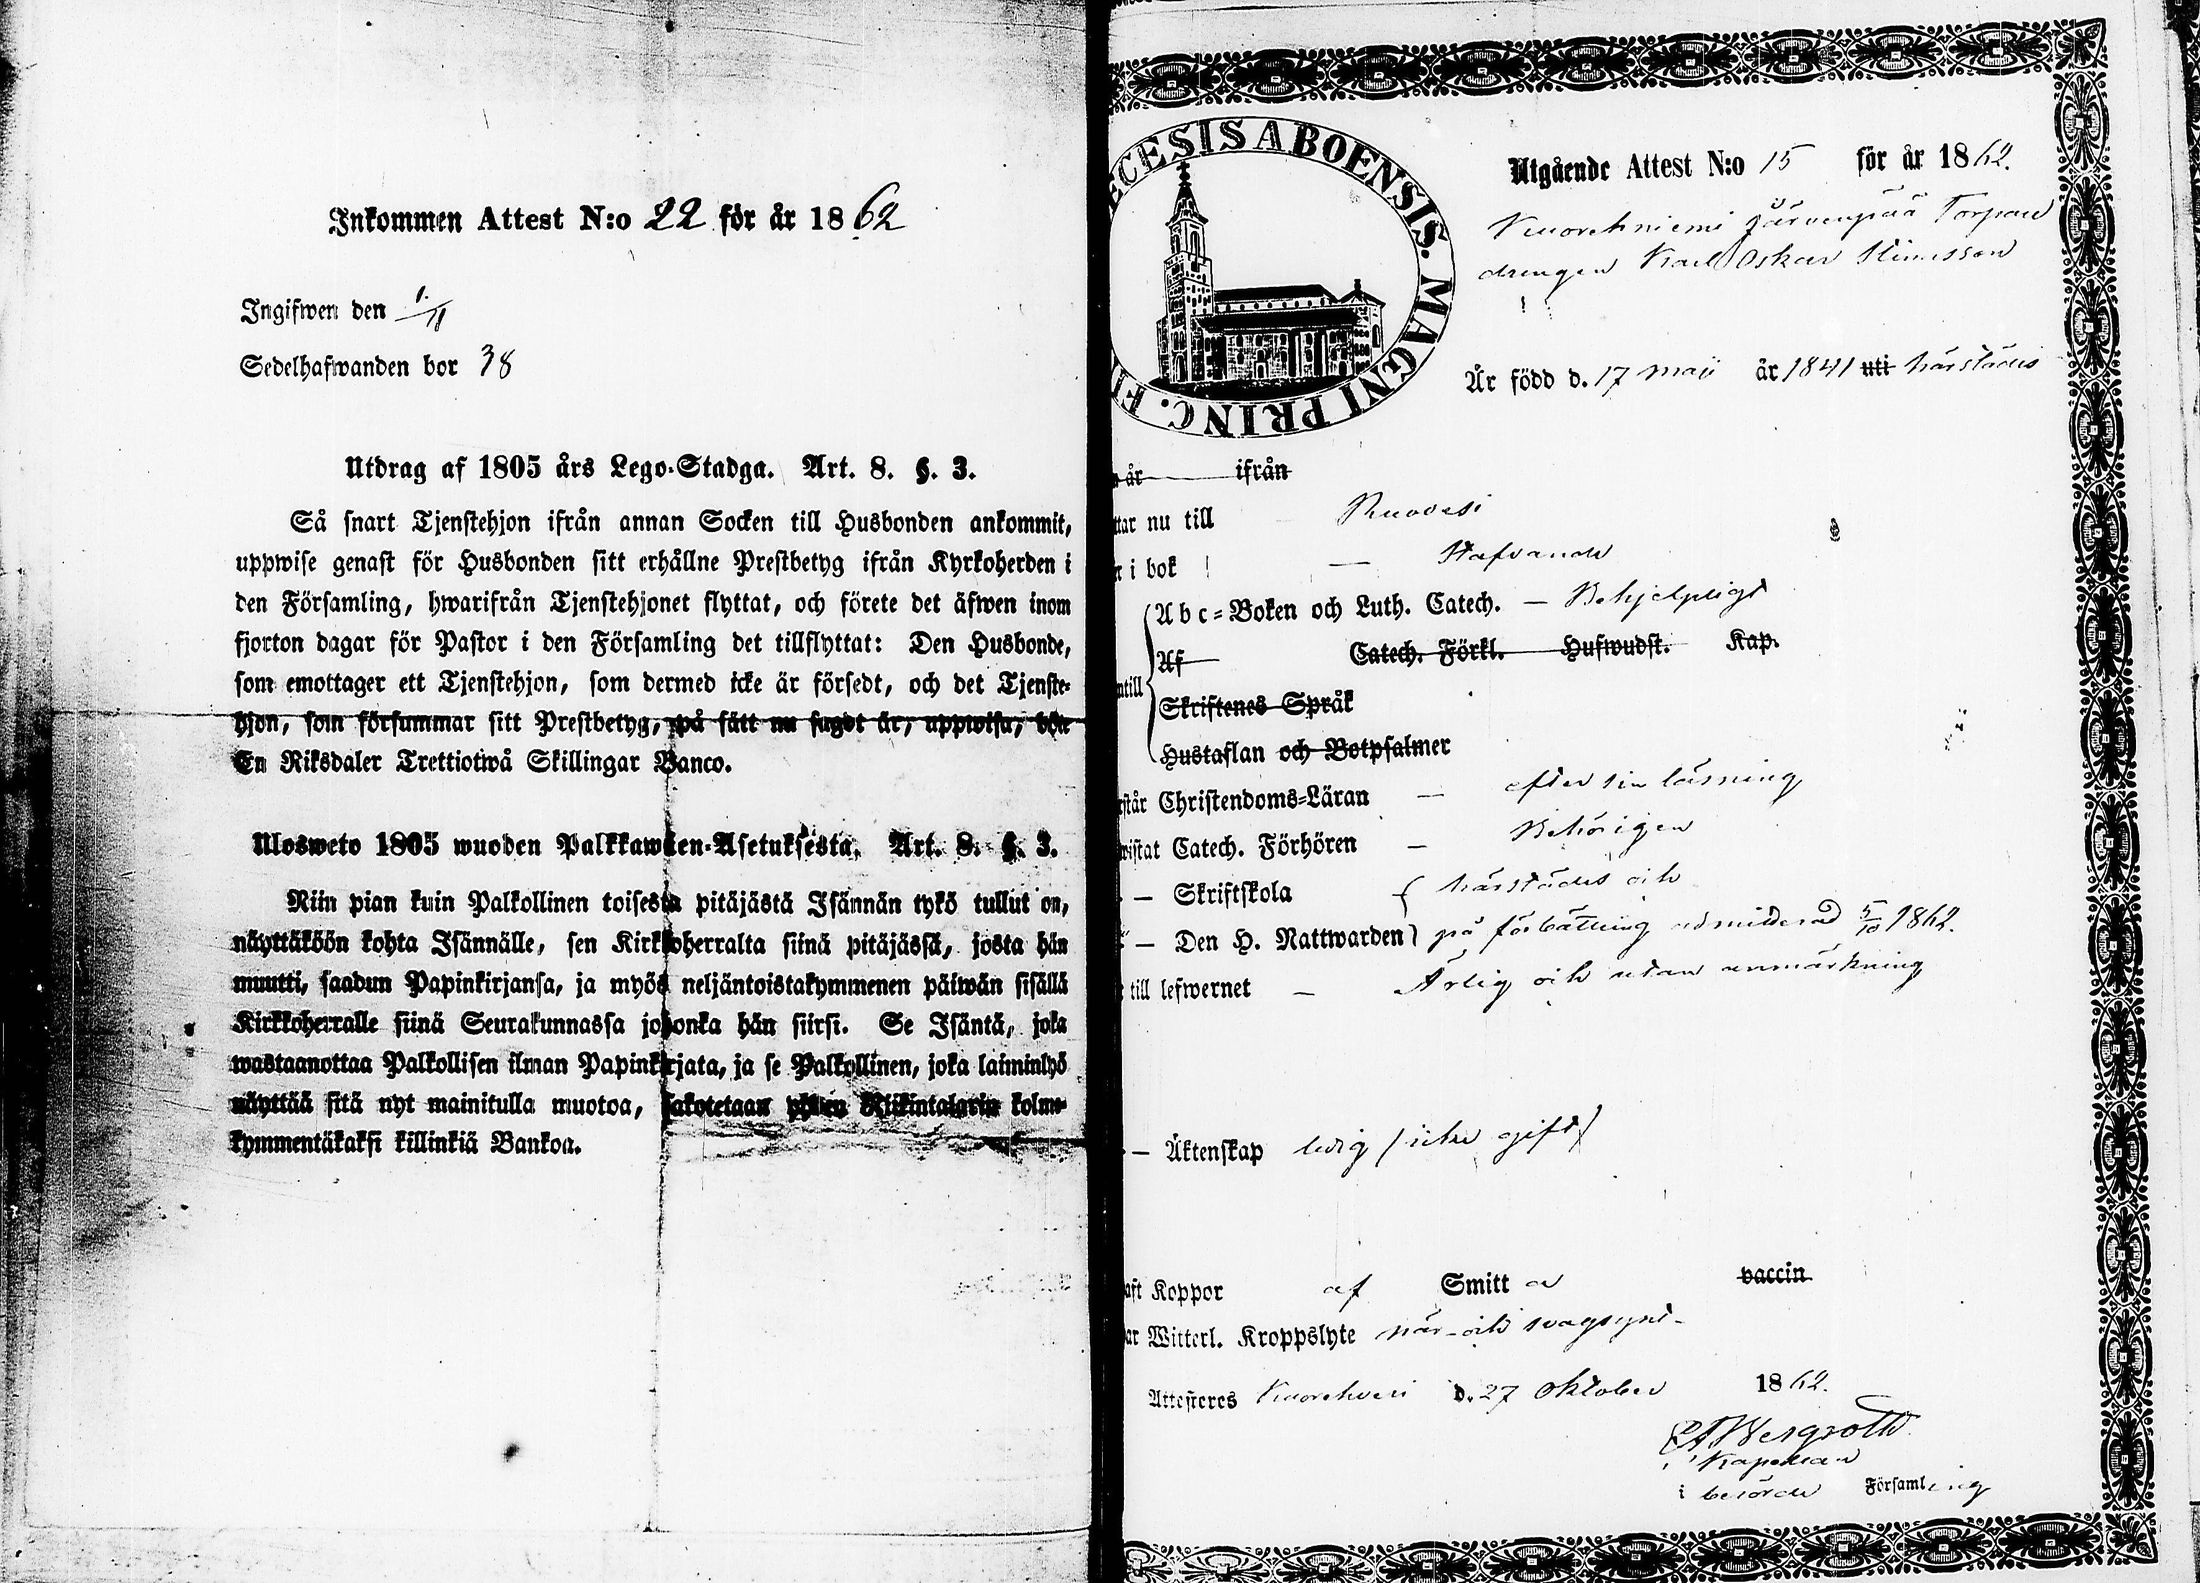 Inkommen Attest N:o 22 för år 1862
Ingifwen den 1/11
Sedelhafwanden bor 38
Utdrag af 1805 års Lego-Stadga. Art. 8. §. 3.
Så snart Tjenstehjon ifrån annan Socken till Husbonden ankommit,
uppwise genast för Husbonden sitt erhållne Prestbetyg ifrån Kyrkoherden i
den Församling, hwarifrån Tjenstehjonet flyttat, och förete det äfwen inom
fjorton dagar för Pastor i den Församling det tillflyttat: Den Husbonde,
som emottager ett Tjenstehjon, som dermed icke är försedt, och det Tjenste-
hjon, som försummar sitt Prestbetyg, på sätt nu sagdt är, uppwisa, böte
En Riksdaler Trettiotwå Skillingar Banco.
Ulosweto 1805 wuoden Palkkawäen-Asetuksesta. Art. 8. §. 3.
Niin pian kuin Palkollinen toisesta pitäjästä Isännän tykö tullut on,
näyttäköön kohta Isännälle, sen Kirkkoherralta siinä pitäjässä, josta hän
muutti, saadun Papinkirjansa, ja myös neljäntoistakymmenen päiwän sisällä
Kirkkoherralle siinä Seurakunnassa johonka hän siirsi. Se Isäntä, joka
wastaanottaa Palkollisen ilman Papinkirjata, ja se Palkollinen, joka laiminlyö
näyttää sitä nyt mainitulla muotoa, sakotetaan yhden Riikintalarin kolme-
kymmentäkaksi killinkiä Bankoa.
CESIS ABOENSIS. MAGNI PRINC. FI
Utgående Attest N:o 15 för år 1862.
Kuorehniemi Järvenpää Torpare
drengen Karl Oskar
Är född d. 17 Maji år 1841 uti härstädes
år ifrån
ttar nu till Ruovesi
i bok Stafvande
Abc-Boken och Luth. Catech. — Behjelpligt
Af Catech. Förkl. Hufwudst. Kap.
ntill
Skriftenes Språk
Hustaflan och Botpsalmer
rstår Christendoms-Läran — efter sin läsning
wistat Catech. Förhören — Behörigen
— Skriftskola härstädes och
— Den H. Nattwarden på förbättring admitterad 5/10 1862.
till lefwernet — Ärlig och utan anmärkning
— Äktenskap ledig (icke gift)
aft Koppor af Smitta vaccin
ar Witterl. Kroppslyte när- och svagsynt-
Attesteres Kuorehvesi d. 27 Oktober 1862.
Bergroth
Kapellan
i berörde Församling